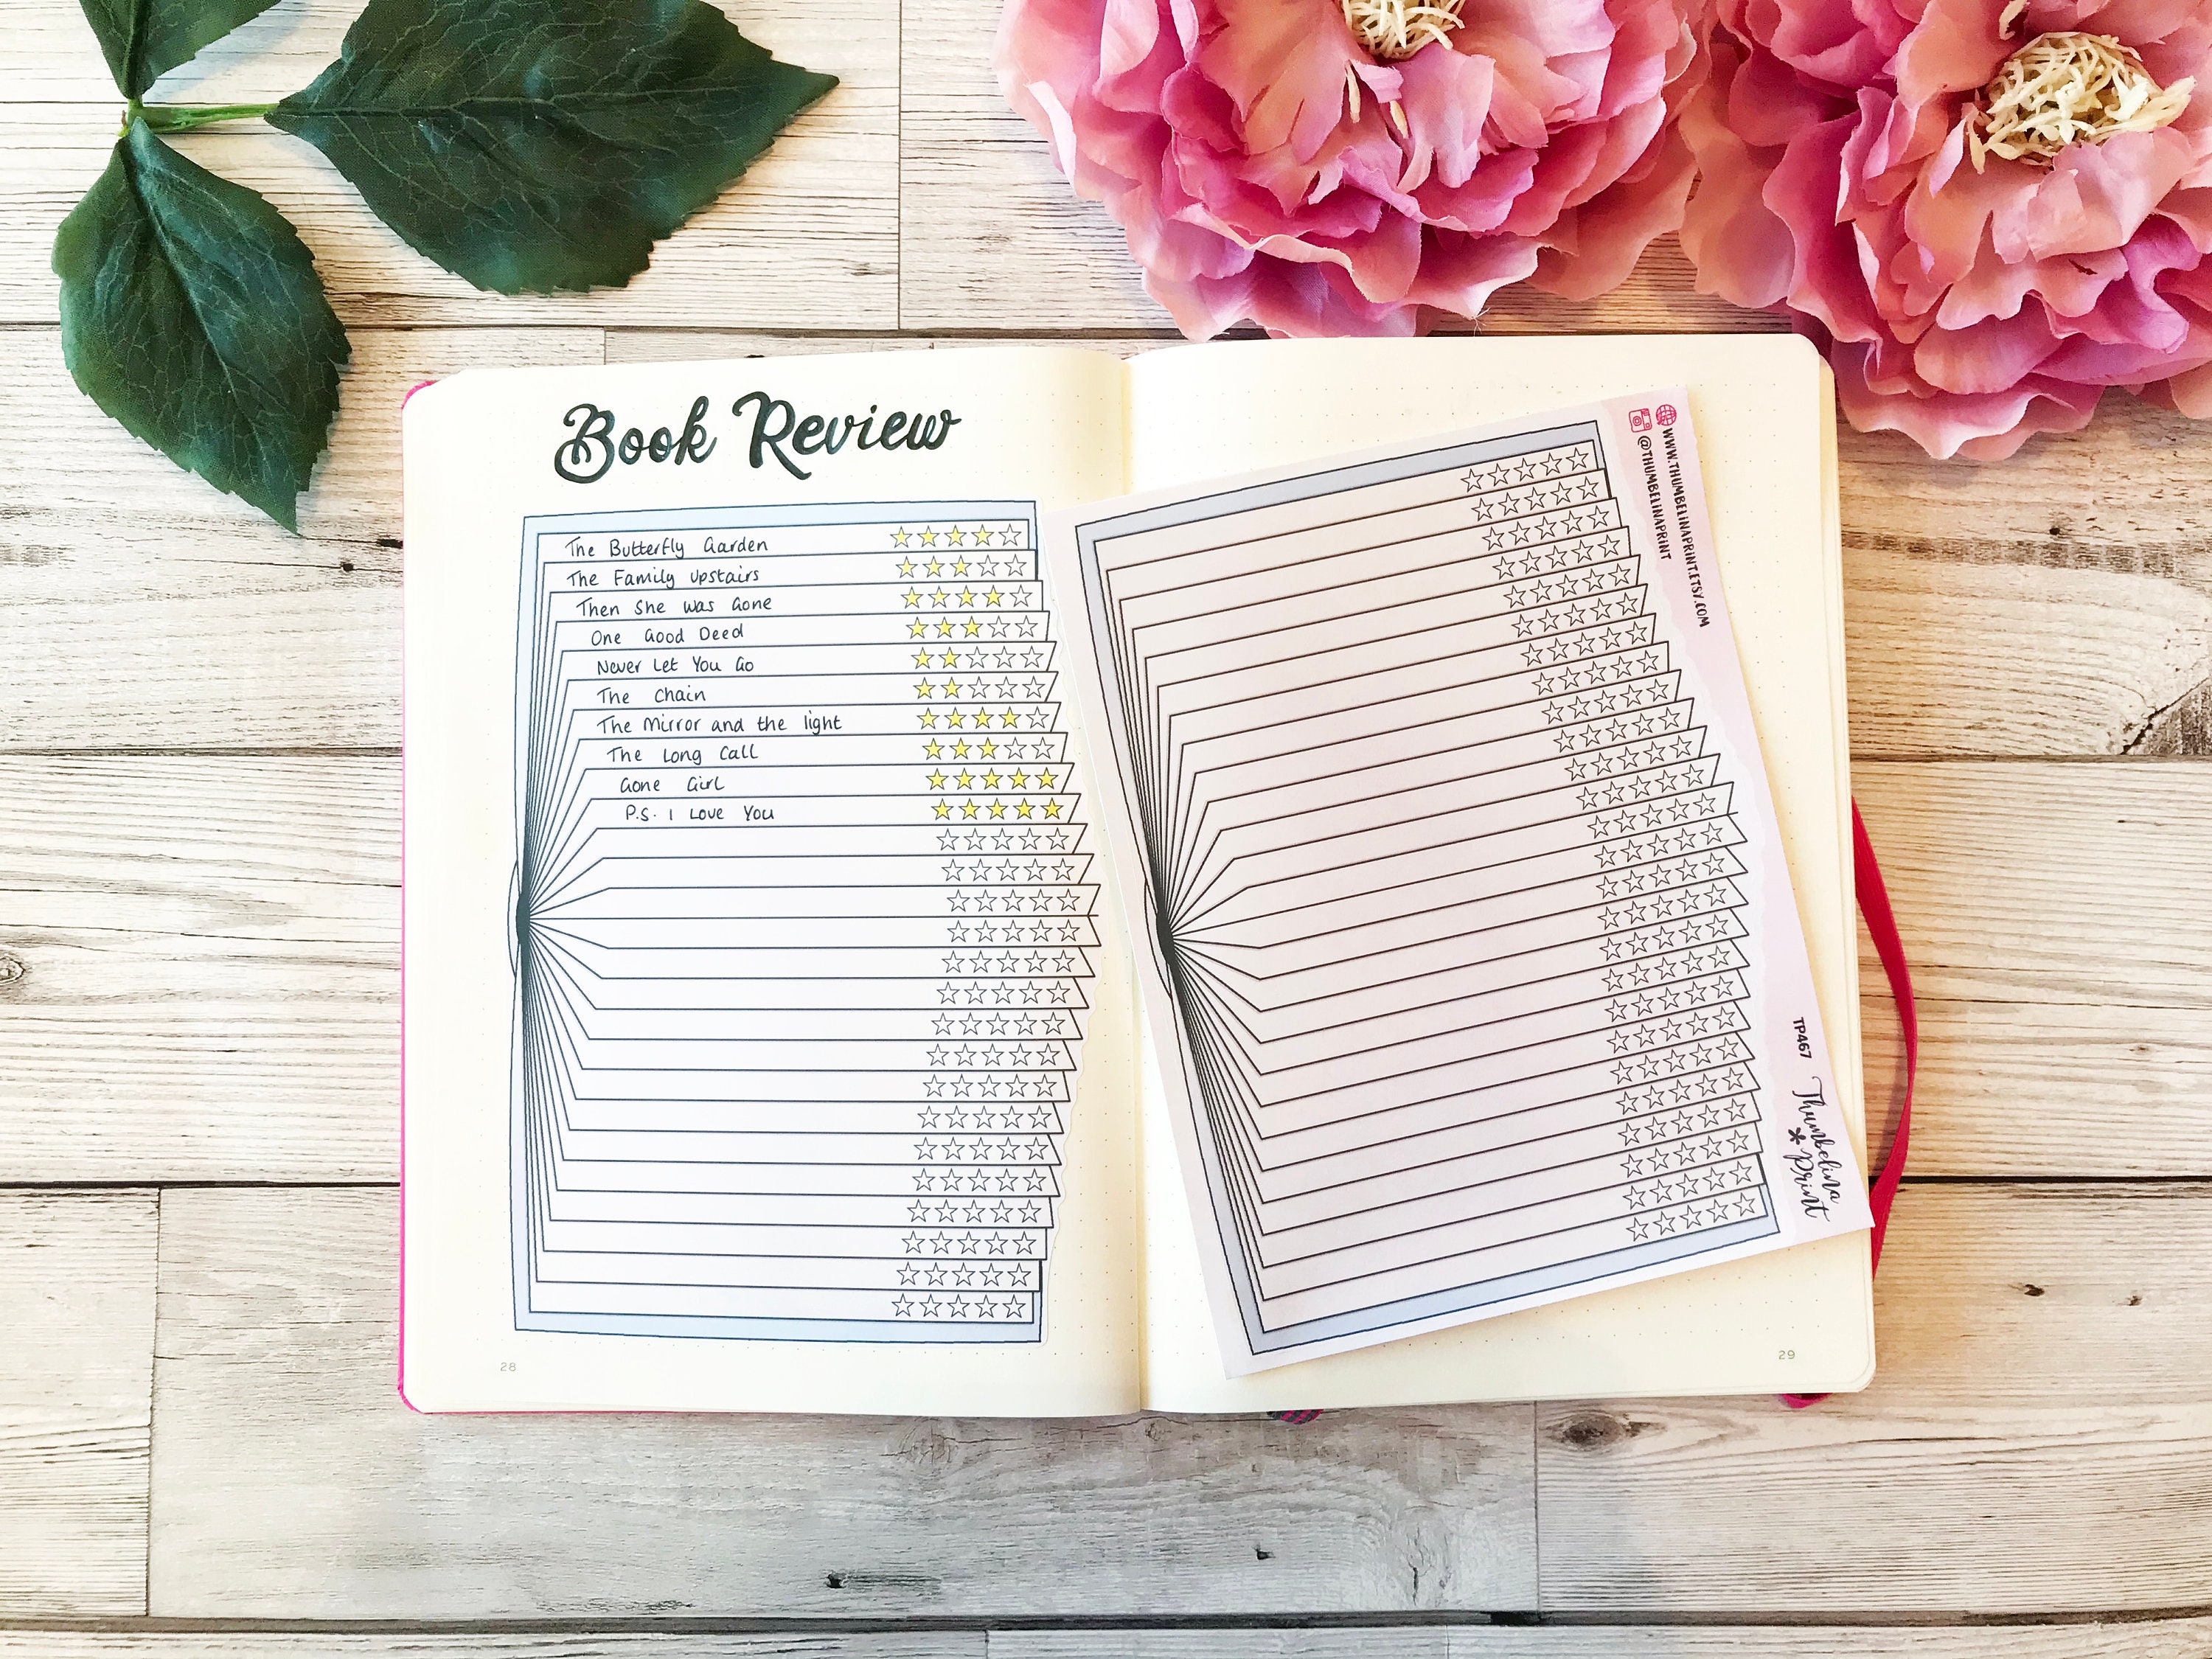 Book Review
The Butterfly Garden
The Family Upstairs
Then She Was Gone
One Good Deed
Never Let You Go
The Chain
The Mirror and the light
The Long Call
Gone Girl
P.S. I Love You
28
WWW.THUMBELINAPRINT.ETSY.COM
@THUMBELINAPRINT
TP467
Thumbelina
Print
29